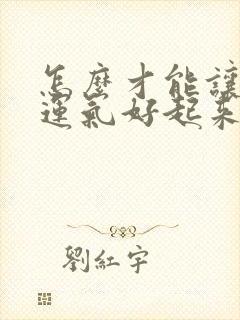 怎麼才能讓
運氣好起來
劉紅宇